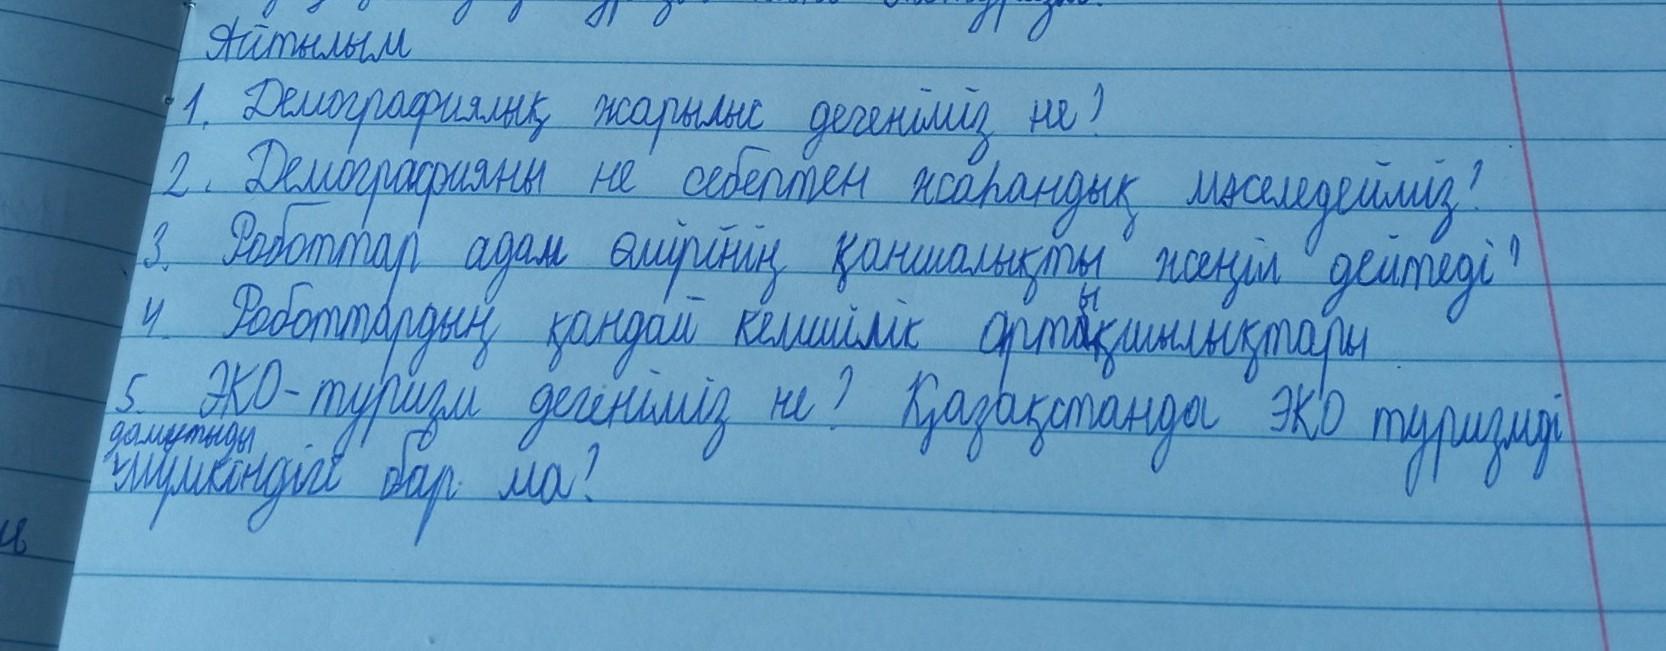 Айтылым
1. Демографиялық жарылыс дегеніміз не?
2. Демографияны не себептен жаһандық мәселедейміз?
3. Роботтар адам өмірінің қаншалықты жеңіл дейтеді?
4 Роботтардың қандай кемшілік артықшылықтары
5. ЭКО-туризм дегеніміз не? Қазақстанда ЭКО туризмді
дамытыды
мүмкіндігі бар ма?